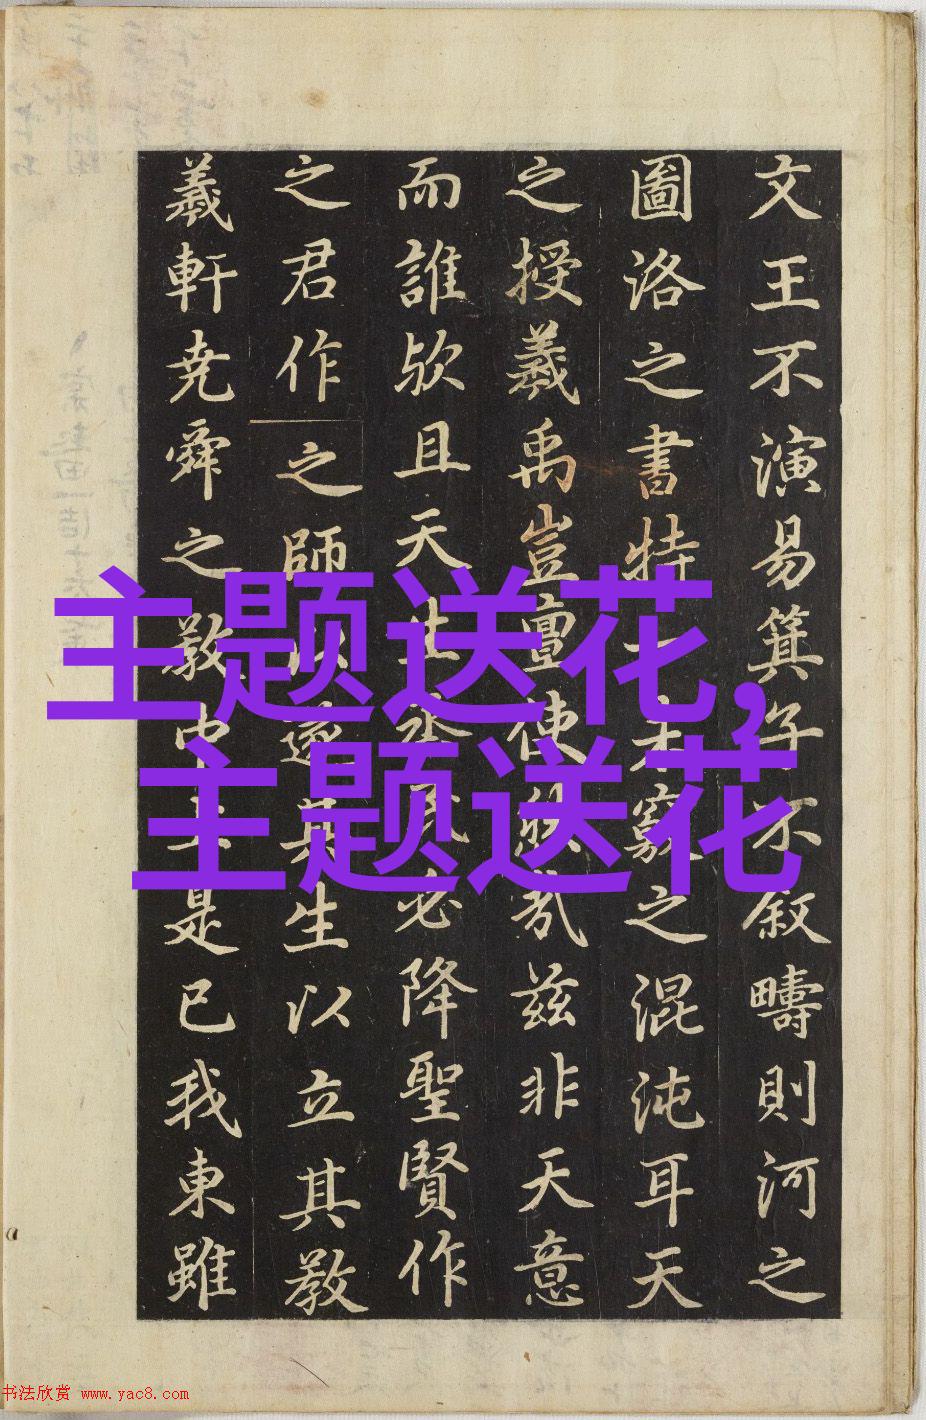 文王不演易箕子不叙疇則河之
圖洛之書特一未窮之混沌耳天
之授羲禹豈亶使然哉兹非天意
而誰欤且天生烝民必降聖賢作
之君作之師以遂其生以立其教
羲軒尭舜之教中土是已我東雖
主题送花,
主题送花
书法欣赏 www.yac8.com